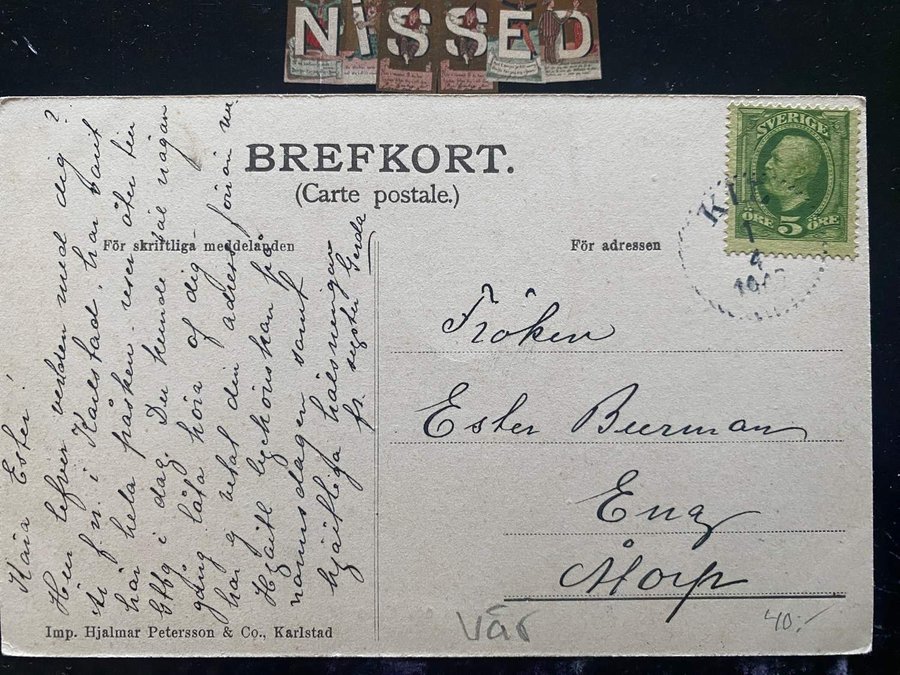 NISSED
BREFKORT.
(Carte postale.)
För skriftliga meddelanden
För adressen
SVERIGE
ÖRE 5 ÖRE
KIL
1
4
Kära Ester!
Hur lefver verlden med dig?
f. n. i Karlstad, har varit
här hela påsken reser åter till
Gtbg i dag. Du kunde väl någon
gång låta höra af dig har
ej vetat din adress förrän nu
Hjärtl lyckönskan på
namnsdagen samt
hjärtliga hälsningar
fr. Gerda
Fröken
Ester Buurman
Eng
Åtorp
Imp. Hjalmar Petersson & Co., Karlstad
vår
40:-